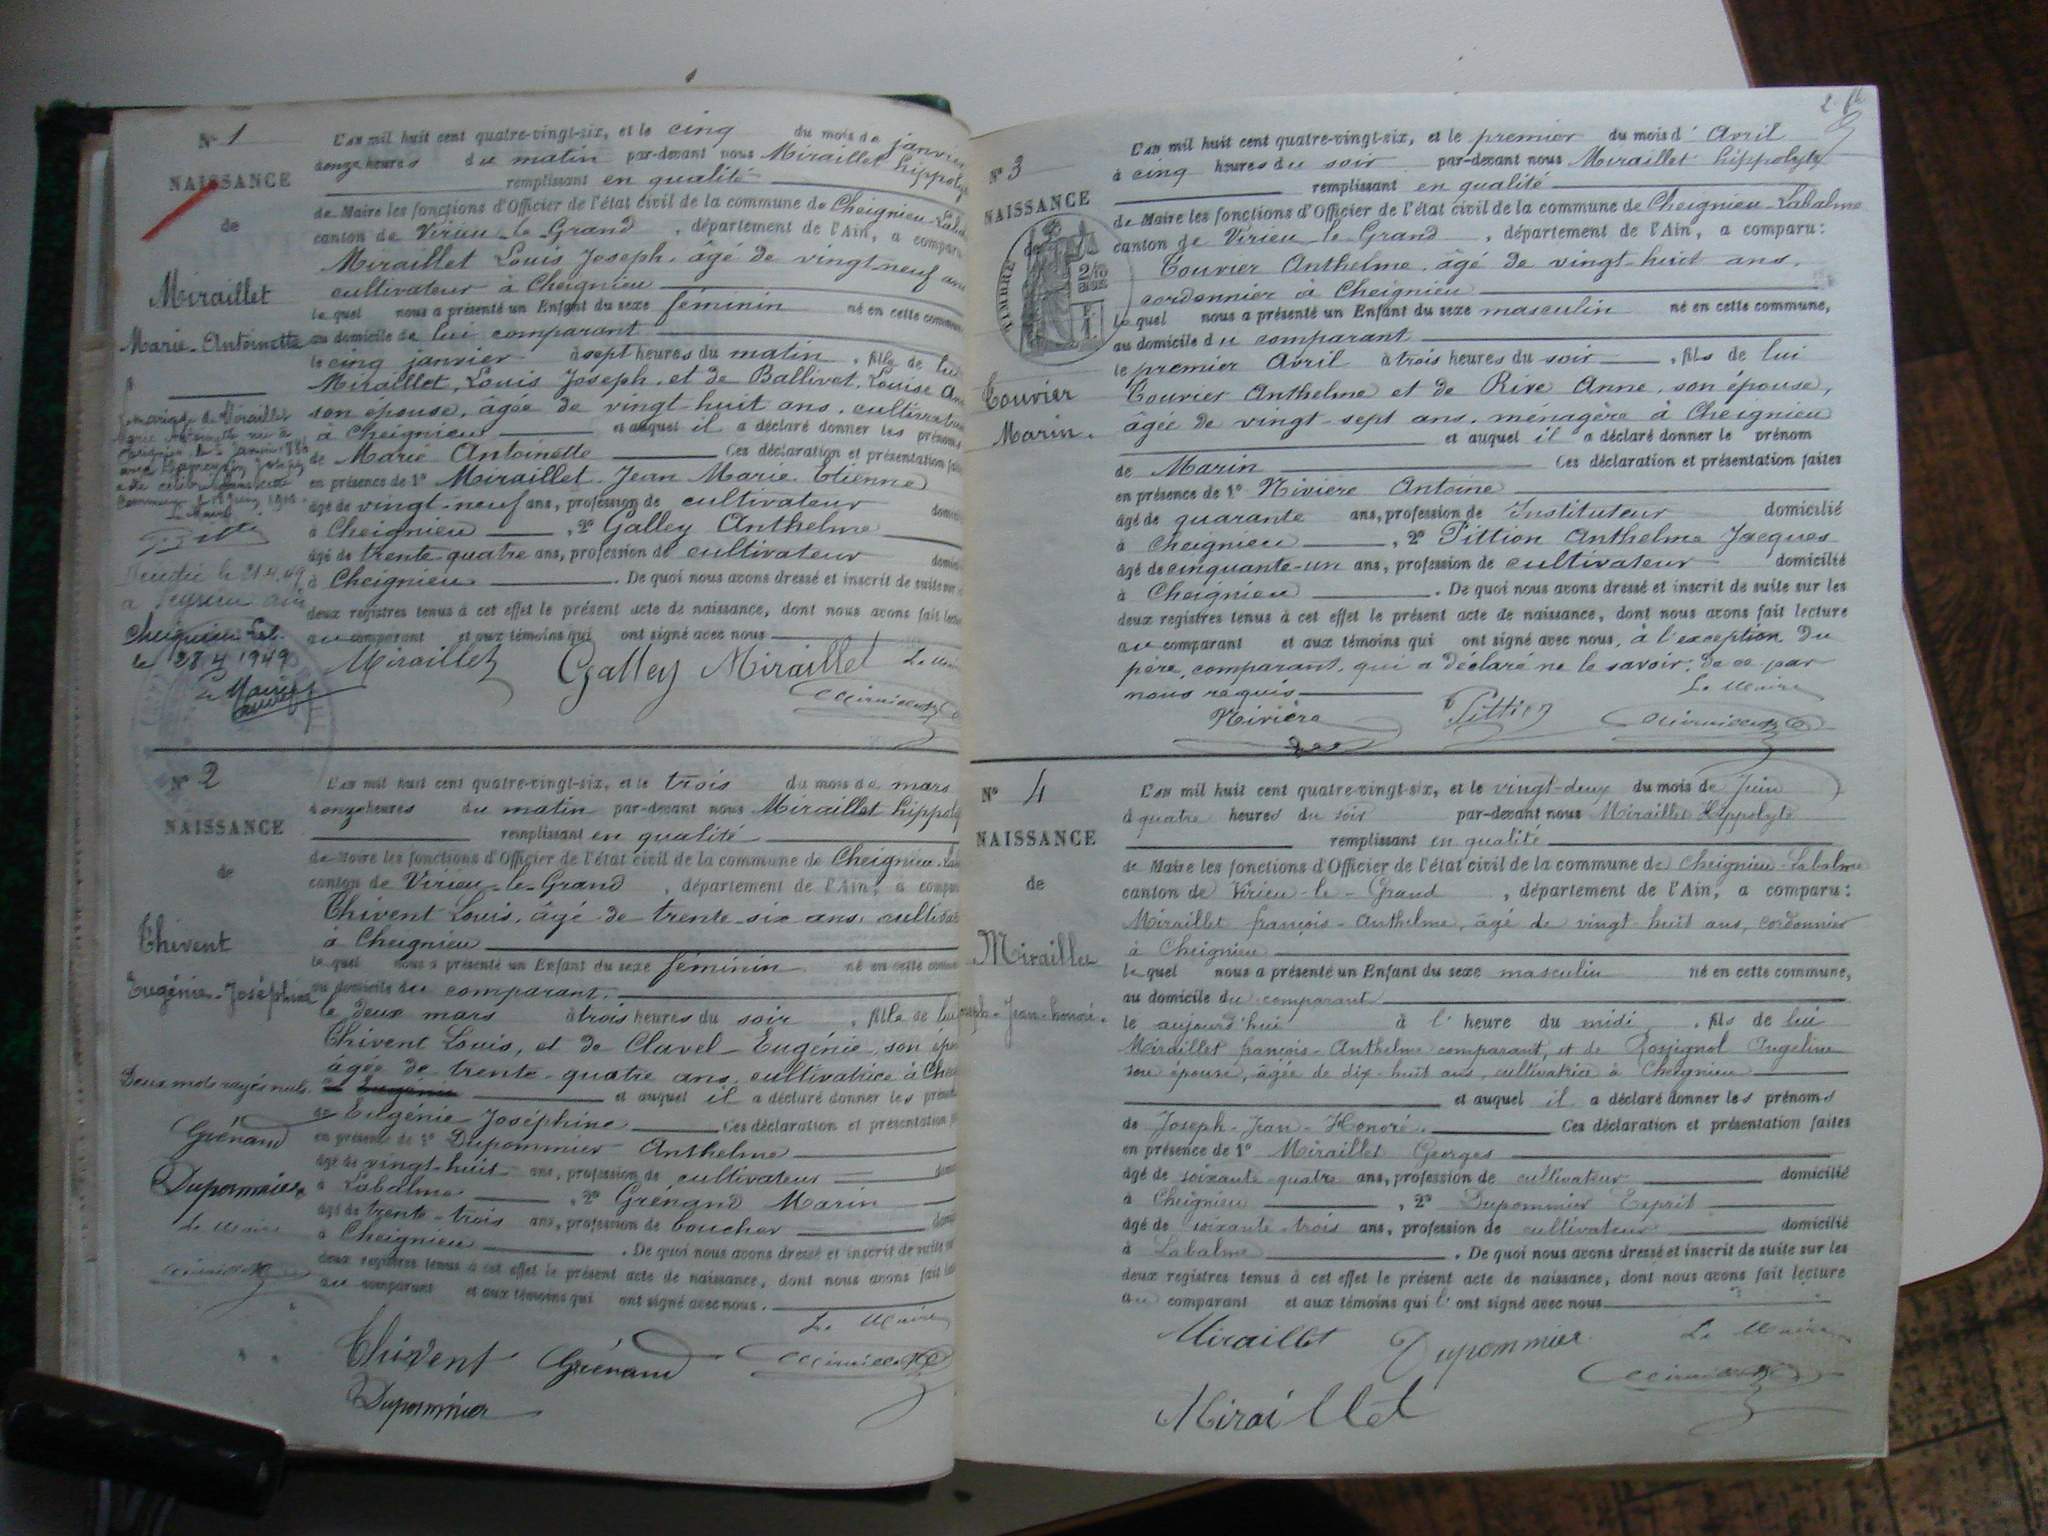 N° 1
NAISSANCE
de
Miraillet
Marie-Antoinette
L'an mil huit cent quatre-vingt-six, et le cinq du mois de janvier
à onze heures du matin par-devant nous Miraillet hippoly
remplissant en qualité
de Maire les fonctions d'Officier de l'état civil de la commune de Cheignieu-Laba
canton de Virieu-le-Grand, département de l'Ain, a comparu
Miraillet Louis Joseph, âgé de vingt-neuf ans
cultivateur à Cheignieu
lequel nous a présenté un Enfant du sexe féminin né en cette commune
au domicile de lui comparant
le cinq janvier à sept heures du matin, fille de lui
Miraillet, Louis Joseph, et de Ballivet, Louise An
son épouse, âgée de vingt-huit ans, cultivatri
à Cheignieu et auquel il a déclaré donner les prénoms
de Marie Antoinette Ces déclaration et présentation faites
en présence de 1° Miraillet Jean Marie Etienne
âgé de vingt-neuf ans, profession de cultivateur domici
à Cheignieu, 2° Galley Anthelme
âgé de trente-quatre ans, profession de cultivateur domici
à Cheignieu. De quoi nous avons dressé et inscrit de suite sur
deux registres tenus à cet effet le présent acte de naissance, dont nous avons fait lectu
au comparant et aux témoins qui ont signé avec nous
Miraillet Galley Miraillet Le Maire
le 21.4.49
Cheignieu-Lab.
le 28 4 1949
Le Maire
N° 2
NAISSANCE
de
Thivent
Eugénie-Joséphine
Deux mots rayés nuls.
Grénaud
Dupommier
Le Maire
L'an mil huit cent quatre-vingt-six, et le trois du mois de mars
à onze heures du matin par-devant nous Miraillet hippoly
remplissant en qualité
de Maire les fonctions d'Officier de l'état civil de la commune de Cheignieu-La
canton de Virieu-le-Grand, département de l'Ain, a compa
Thivent Louis, âgé de trente-six ans, cultivat
à Cheignieu
lequel nous a présenté un Enfant du sexe féminin né en cette commu
au domicile du comparant.
le deux mars à trois heures du soir, fille de lui
Thivent Louis, et de Clavel-Eugénie, son épou
âgée de trente-quatre ans, cultivatrice à Chei
et auquel il a déclaré donner les préno
de Eugénie Joséphine Ces déclaration et présentation
en présence de 1° Dupommier Anthelme
âgé de vingt-huit ans, profession de cultivateur domi
à Labalme, 2° Grénaud Marin
âgé de trente-trois ans, profession de boucher domi
à Cheignieu. De quoi nous avons dressé et inscrit de suite sur
deux registres tenus à cet effet le présent acte de naissance, dont nous avons fait le
au comparant et aux témoins qui ont signé avec nous.
Le Maire
Thivent Grénaud
Dupommier
N° 3
NAISSANCE
de
TIMBRE
2/10
EN SUS
Touvier
Marin.
L'an mil huit cent quatre-vingt-six, et le premier du mois d'Avril
à cinq heures du soir par-devant nous Miraillet hippolyte
remplissant en qualité
de Maire les fonctions d'Officier de l'état civil de la commune de Cheignieu-Labalme
canton de Virieu-le-Grand, département de l'Ain, a comparu:
Touvier Anthelme, âgé de vingt-huit ans,
cordonnier à Cheignieu
lequel nous a présenté un Enfant du sexe masculin né en cette commune,
au domicile du comparant
le premier Avril à trois heures du soir, fils de lui
Touvier Anthelme et de Rive Anne, son épouse,
âgée de vingt-sept ans, ménagère à Cheignieu
et auquel il a déclaré donner le prénom
de Marin Ces déclaration et présentation faites
en présence de 1° Rivière Antoine
âgé de quarante ans, profession de Instituteur domicilié
à Cheignieu, 2° Pittion Anthelme Jacques
âgé de cinquante-un ans, profession de cultivateur domicilié
à Cheignieu. De quoi nous avons dressé et inscrit de suite sur les
deux registres tenus à cet effet le présent acte de naissance, dont nous avons fait lecture
au comparant et aux témoins qui ont signé avec nous, à l'exception du
père, comparant, qui a déclaré ne le savoir; de ce par
nous requis
Le Maire
Rivière Pittion
N° 4
NAISSANCE
de
Miraillet
Joseph-Jean-honoré.
L'an mil huit cent quatre-vingt-six, et le vingt-deux du mois de Juin
à quatre heures du soir par-devant nous Miraillet Hippolyte
remplissant en qualité
de Maire les fonctions d'Officier de l'état civil de la commune de Cheignieu-Labalme
canton de Virieu-le-Grand, département de l'Ain, a comparu:
Miraillet françois-Anthelme, âgé de vingt-huit ans, cordonnier
à Cheignieu
lequel nous a présenté un Enfant du sexe masculin né en cette commune,
au domicile du comparant
le aujourd'hui à l'heure du midi, fils de lui
Miraillet françois-Anthelme comparant, et de Rossignol Angeline
son épouse, âgée de dix-huit ans, cultivatrice à Cheignieu
et auquel il a déclaré donner les prénoms
de Joseph-Jean-Honoré. Ces déclaration et présentation faites
en présence de 1° Miraillet Georges
âgé de soixante quatre ans, profession de cultivateur domicilié
à Cheignieu, 2° Dupommier Esprit
âgé de soixante-trois ans, profession de cultivateur domicilié
à Labalme. De quoi nous avons dressé et inscrit de suite sur les
deux registres tenus à cet effet le présent acte de naissance, dont nous avons fait lecture
au comparant et aux témoins qui l'ont signé avec nous
Miraillet Dupommier Le Maire
Miraillet